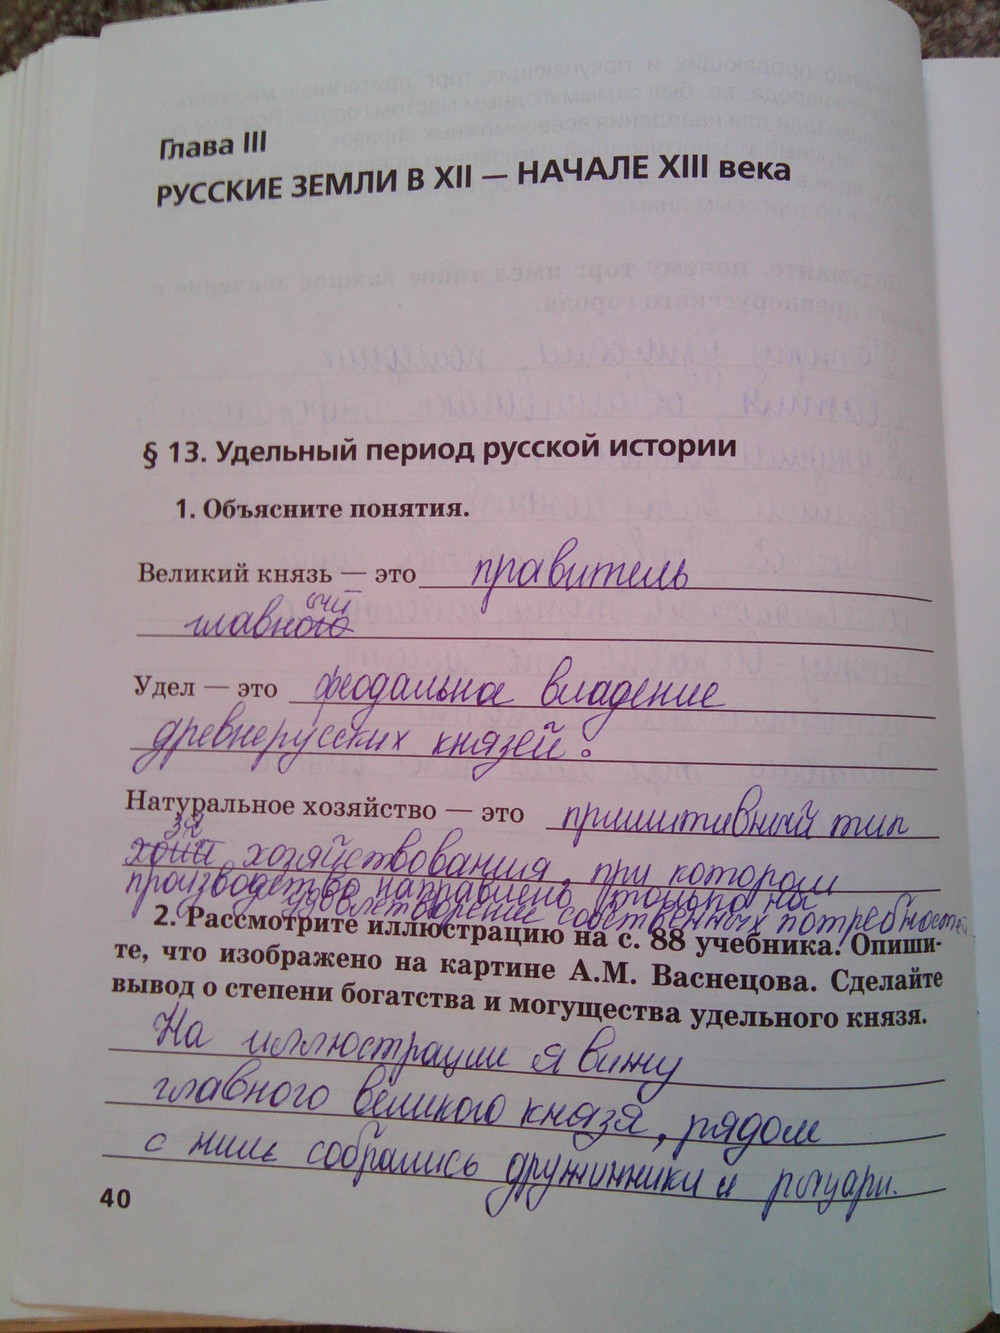 Глава III
РУССКИЕ ЗЕМЛИ В XII — НАЧАЛЕ XIII века
§ 13. Удельный период русской истории
1. Объясните понятия.
Великий князь — это правитель
главного
Удел — это феодальное владение
древнерусских князей.
Натуральное хозяйство — это примитивный тип
хозяйствования, при котором
производство направлено только на
удовлетворение собственных потребностей
2. Рассмотрите иллюстрацию на с. 88 учебника. Опиши-
те, что изображено на картине А.М. Васнецова. Сделайте
вывод о степени богатства и могущества удельного князя.
На иллюстрации я вижу
главного великого князя, рядом
с ним собрались дружинники и рыцари.
40